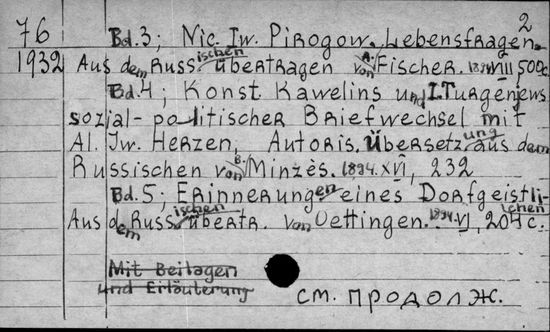 2
76 Bd.3; Nic. Iw. Pirogow. Lebensfragen.
1932 Aus dem Russischen übertragen von A. Fischer. 1894. VIII, 500 c.
Bd.4; Konst Kawelins und I. Turgenjews
sozial-politischer Briefwechsel mit
Al. Iw. Herzen, Autoris. Übersetzung aus dem
Russischen von B. Minzès. 1894. XVI, 232
Bd.5; Erinnerungen eines Dorfgeistlichen
Aus dem Russischen übertr. von Oettingen. 1894. VI, 204 c.
Mit Beilagen
und Erläuterung
см. продолж.